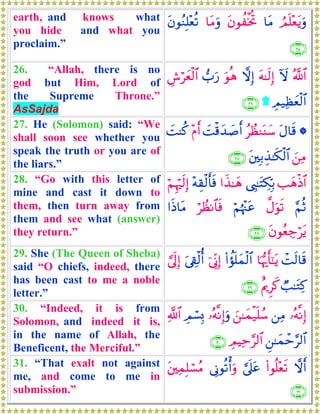 earth, and knows what
you hide and what you
proclaim.”
وَيَعۡلَمُ مَا تُخۡفُونَ وَمَا تُعۡلِنُونَ
٢٥
26. “Allah, there is no
god but Him, Lord of
the Supreme Throne.”
AsSajda
ٱللَّهُ لَآ إِلَٰهَ إِلَّا هُوَ رَبُّ ٱلۡعَرۡشِ
ٱلۡعَظِيمِ ۩ ٢٦
27. He (Solomon) said: “We
shall soon see whether you
speak the truth or you are of
the liars.”
۞ قَالَ سَنَنظُرُ أَصَدَقۡتَ أَمۡ كُنتَ
مِنَ ٱلۡكَٰذِبِينَ ٢٧
28. “Go with this letter of
mine and cast it down to
them, then turn away from
them and see what (answer)
they return.”
ٱذۡهَب بِّكِتَٰبِي هَٰذَا فَأَلۡقِهۡ إِلَيۡهِمۡ
ثُمَّ تَوَلَّ عَنۡهُمۡ فَٱنظُرۡ مَاذَا
يَرۡجِعُونَ ٢٨
29. She (The Queen of Sheba)
said “O chiefs, indeed, there
has been cast to me a noble
letter.”
قَالَتۡ يَٰٓأَيُّهَا ٱلۡمَلَؤُاْ إِنِّيٓ أُلۡقِيَ إِلَيَّ
كِتَٰبٞ كَرِيمٌ ٢٩
30. “Indeed, it is from
Solomon, and indeed it is,
in the name of Allah, the
Beneficent, the Merciful.”
إِنَّهُۥ مِن سُلَيۡمَٰنَ وَإِنَّهُۥ بِسۡمِ ٱللَّهِ
ٱلرَّحۡمَٰنِ ٱلرَّحِيمِ ٣٠
31. “That exalt not against
me, and come to me in
submission.”
أَلَّا تَعۡلُواْ عَلَيَّ وَأۡتُونِي مُسۡلِمِينَ
٣١